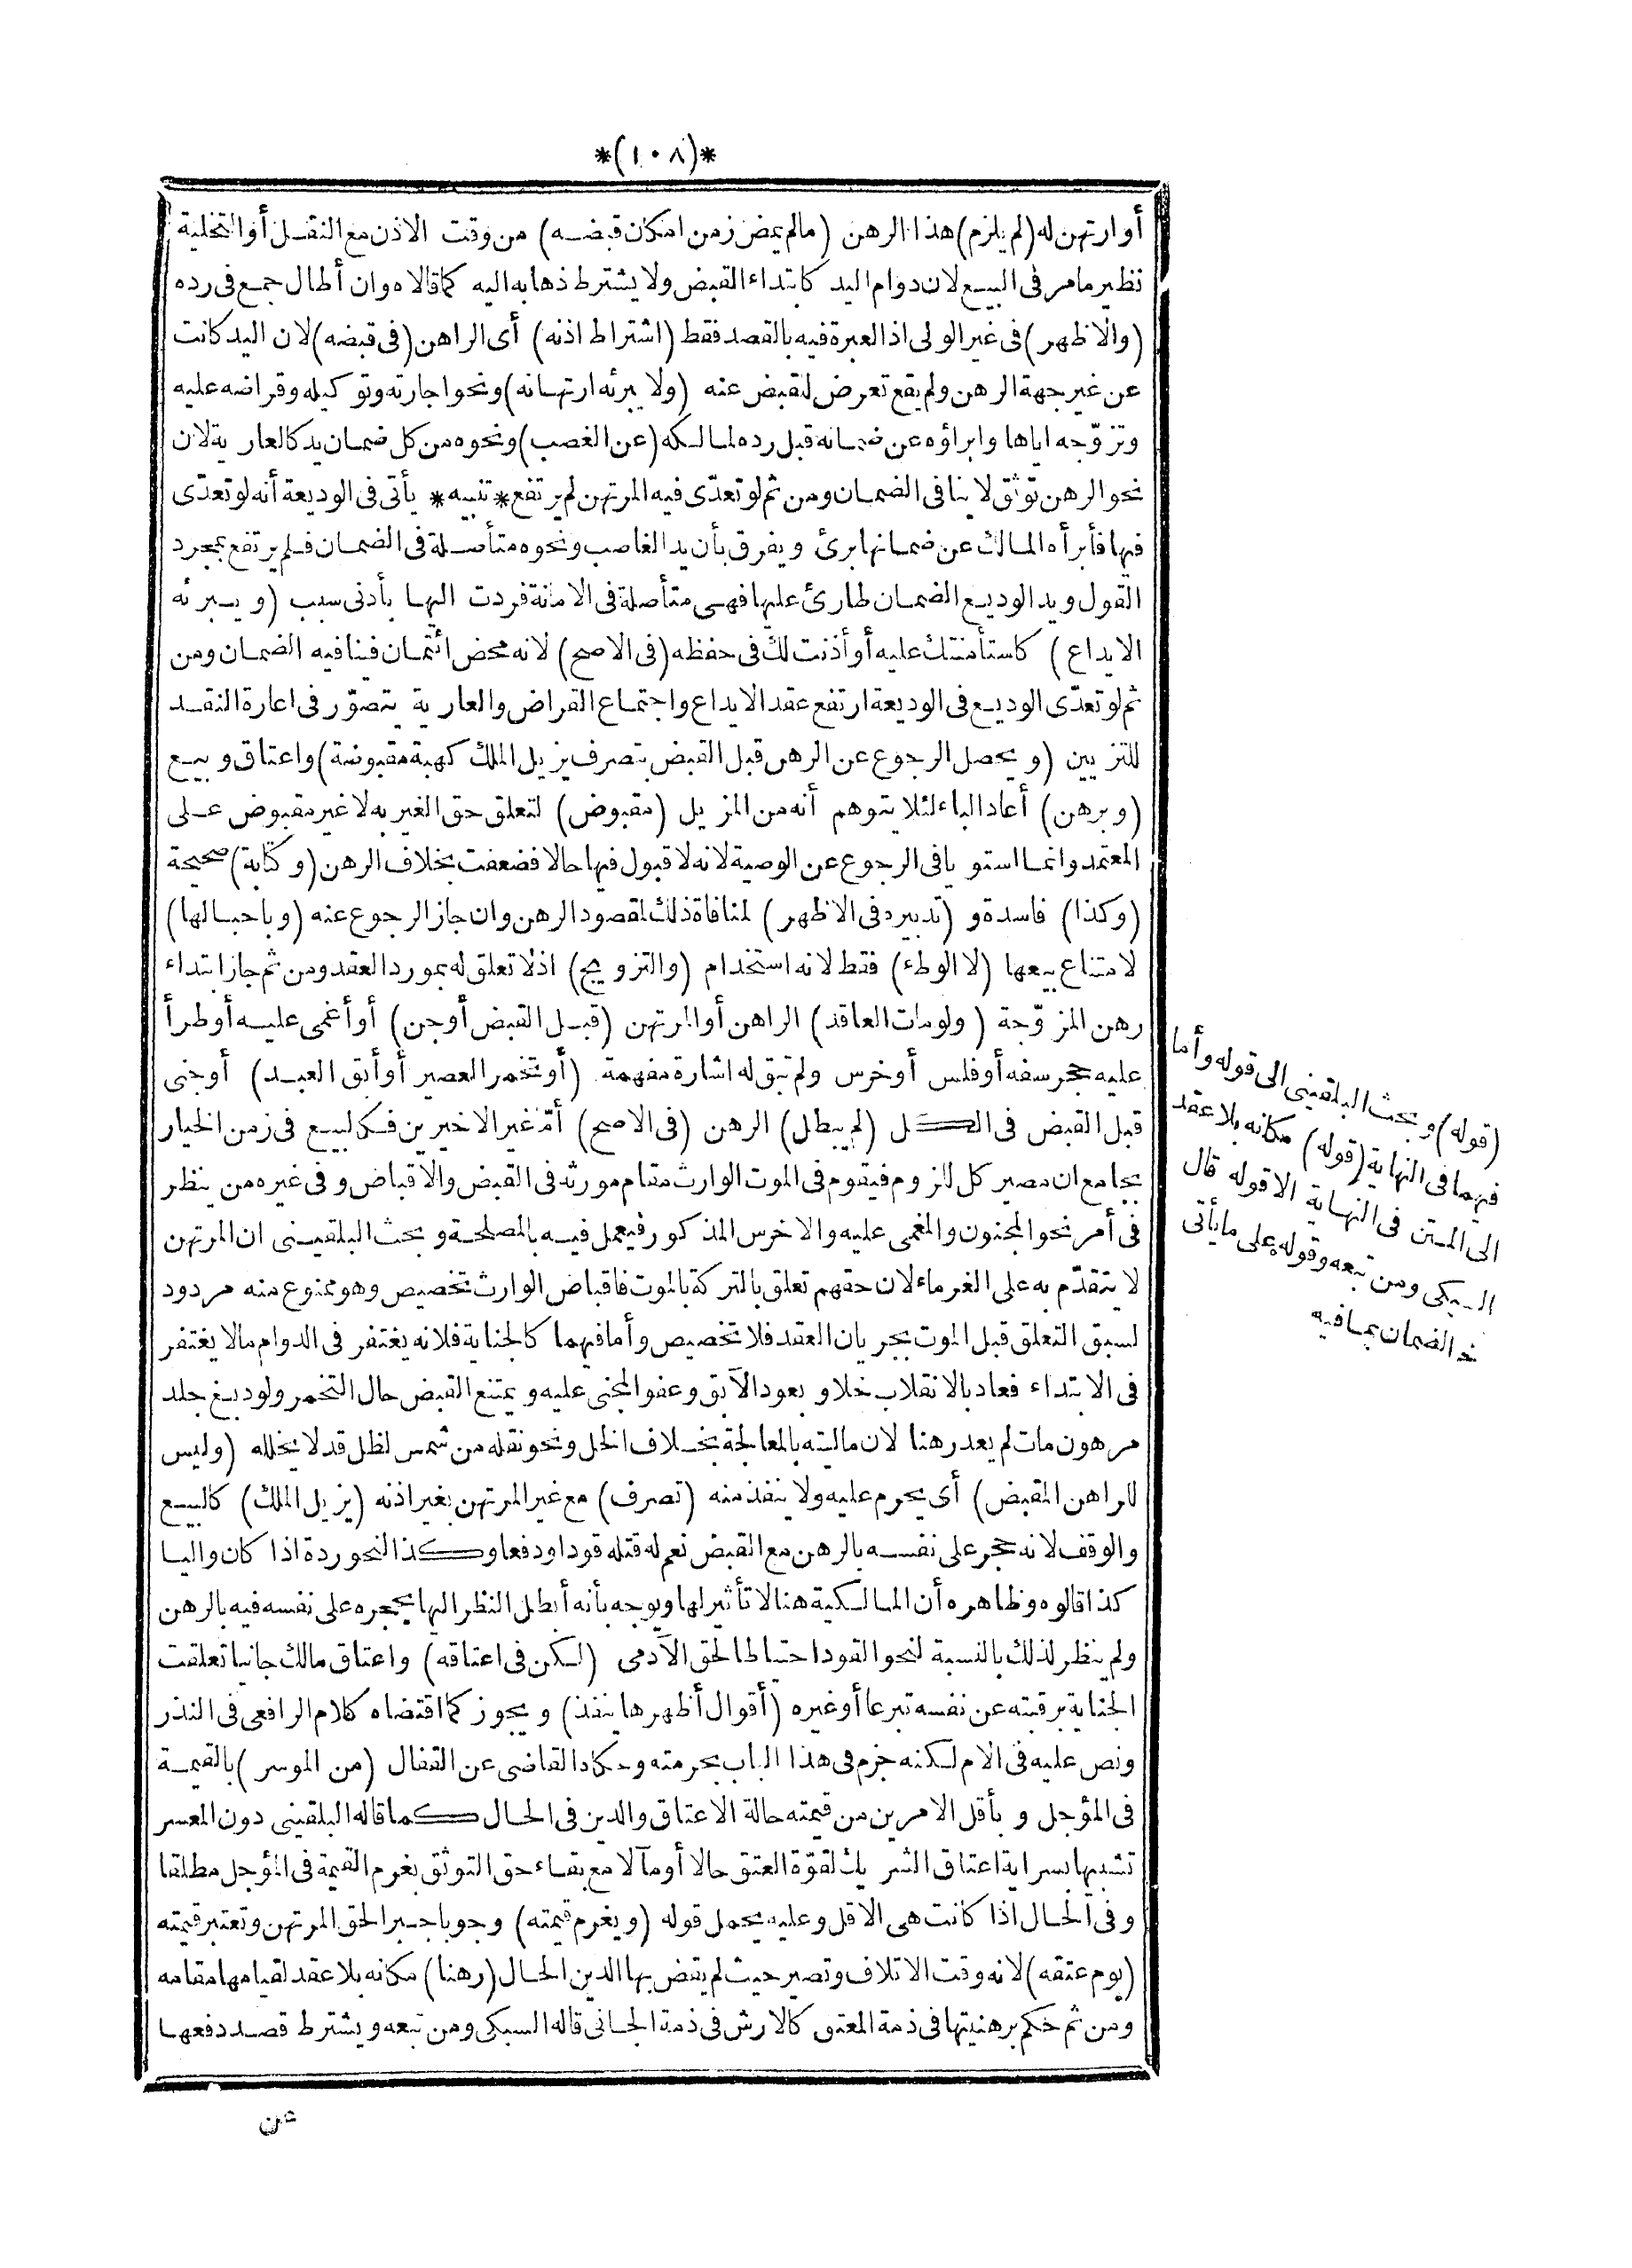 *(١٠٨)*
أو ارتهن له (لم يلزم) هذا الرهن (مالم يمض زمن امكان قبضه) من وقت الاذن مع النقل أو التخلية
نظير ما مر فى البيع لان دوام اليد كابتداء القبض ولا يشترط ذهابه اليه كما قالاه وان أطال جمع فى رده
(والاظهر) فى غير الولى اذ العبرة فيه بالقصد فقط (اشتراط اذنه) أى الراهن (فى قبضه) لان اليد كانت
عن غير جهة الرهن ولم يقع تعرض للقبض عنه (ولا يبرئه ارتهانه) ونحو اجارته وتوكيله وقراضه عليه
وتزوّجه اياها وابراؤه عن ضمانه قبل رده لمالكه (عن الغصب) ونحوه من كل ضمان يد كالعارية لان
نحو الرهن توثق لا ينافى الضمان ومن ثم لو تعدّى فيه المرتهن لم يرتفع *تنبيه* يأتى فى الوديعة أنه لو تعدّى
فيها فأبرأه المالك عن ضمانها برئ ويفرق بأن يد الغاصب ونحوه متأصلة فى الضمان فلم يرتفع بمجرد
القول ويد الوديع الضمان طارئ عليها فهى متأصلة فى الامانة فردت اليها بأدنى سبب (ويبرئه
الايداع) كاستأمنتك عليه أو أذنت لك فى حفظه (فى الاصح) لانه محض ائتمان فنافيه الضمان ومن
ثم لو تعدّى الوديع فى الوديعة ارتفع عقد الايداع واجتماع القراض والعارية يتصوّر فى اعارة النقد
للتزيين (ويحصل الرجوع عن الرهن قبل القبض بتصرف يزيل الملك كهبة مقبوضة) واعتاق وبيع
(وبرهن) أعاد الباء لئلا يتوهم أنه من المزيل (مقبوض) لتعلق حق الغير به لا غير مقبوض على
المعتمد وانما استويا فى الرجوع عن الوصية لانه لا قبول فيها حالا فضعفت بخلاف الرهن (وكتابة) صحيحة
(وكذا) فاسدة و (تدبيره فى الاظهر) لمنافاة ذلك لمقصود الرهن وان جاز الرجوع عنه (وباحبالها)
لامتناع بيعها (لا الوطء) فقط لانه استخدام (والتزويج) اذ لا تعلق له بمورد العقد ومن ثم جاز ابتداء
رهن المزوّجة (ولو مات العاقد) الراهن أو المرتهن (قبل القبض أو جن) أو أغمى عليه أو طرأ
عليه حجر سفه أو فلس أو خرس ولم تبق له اشارة مفهمة (أو تخمر العصير أو أبق العبد) أو جنى
قبل القبض فى الكل (لم يبطل) الرهن (فى الاصح) أمّا غير الاخيرين فكالبيع فى زمن الخيار
بجامع ان مصير كل للزوم فيقوم فى الموت الوارث مقام مورثه فى القبض والاقباض وفى غيره من ينظر
فى أمر نحو المجنون والمغمى عليه والاخرس المذكور فيعمل فيه بالمصلحة وبحث البلقينى ان المرتهن
لا يتقدّم به على الغرماء لان حقهم تعلق بالتركة بالموت فاقباض الوارث تخصيص وهو ممنوع منه مردود
لسبق التعلق قبل الموت بجريان العقد فلا تخصيص وأما فيهما كالجناية فلانه يغتفر فى الدوام مالا يغتفر
فى الابتداء فعاد بالانقلاب خلا وبعود الآبق وعفو المجنى عليه ويمتنع القبض حال التخمر ولو دبغ جلد
مرهون مات لم يعد رهنا لان ماليته بالمعالجة بخلاف الخل ونحو نقله من شمس لظل قد لا يخلله (وليس
للراهن المقبض) أى يحرم عليه ولا ينفذ منه (تصرف) مع غير المرتهن بغير اذنه (يزيل الملك) كالبيع
والوقف لانه حجر على نفسه بالرهن مع القبض نعم له قتله قودا ودفعا وكذا لنحو ردة اذا كان واليا
كذا قالوه وظاهره أن المالكية هنا لا تأثير لها ويوجه بأنه أبطل النظر اليها بحجره على نفسه فيه بالرهن
ولم ينظر لذلك بالنسبة لنحو القود احتياطا لحق الآدمى (لكن فى اعتاقه) واعتاق مالك جانيا تعلقت
الجناية برقبته عن نفسه تبرعا أو غيره (أقوال أظهرها ينفذ) ويجوز كما اقتضاه كلام الرافعى فى النذر
ونص عليه فى الام لكنه جزم فى هذا الباب بحرمته وحكاه القاضى عن القفال (من الموسر) بالقيمة
فى المؤجل وبأقل الامرين من قيمته حالة الاعتاق والدين فى الحال كما قاله البلقينى دون المعسر
تشبيها بسراية اعتاق الشريك لقوّة العتق حالا أو مآلا مع بقاء حق التوثق بغرم القيمة فى المؤجل مطلقا
وفى الحال اذا كانت هى الاقل وعليه يحمل قوله (ويغرم قيمته) وجوبا جبرا لحق المرتهن وتعتبر قيمته
(يوم عتقه) لانه وقت الاتلاف وتصير حيث لم يقض بها الدين الحال (رهنا) مكانه بلا عقد لقيامها مقامه
ومن ثم حكم برهنيتها فى ذمة المعتق كالارش فى ذمة الجانى قاله السبكى ومن تبعه ويشترط قصد دفعها
عن
(قوله) وبحث البلقينى الى قوله وأما
فيهما فى النهاية (قوله) مكانه بلا عقد
الى المتن فى النهاية الا قوله قال
السبكى ومن تبعه وقوله على ما يأتى
الضمان بما فيه